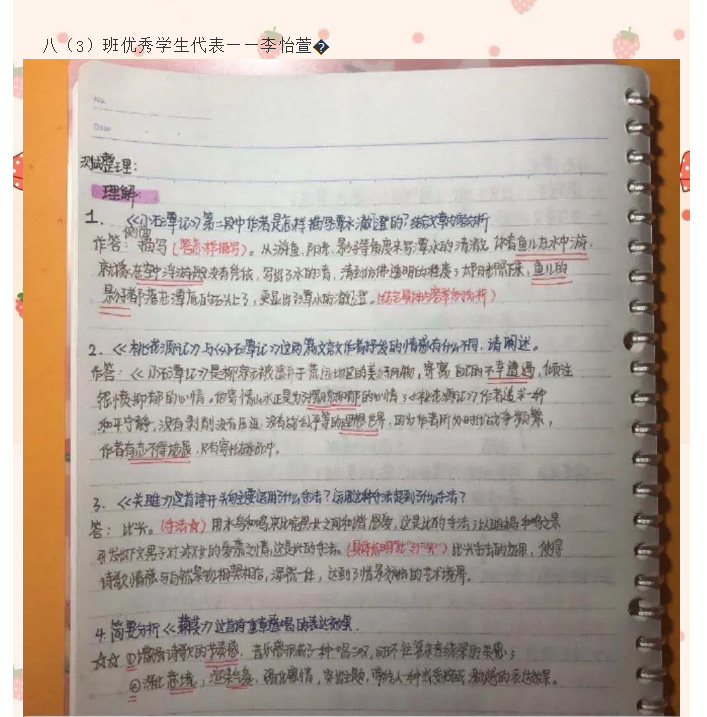 八（3）班优秀学生代表——李怡萱�
No.
Date
测试整理：
理解：
1. 《小石潭记》第二段中作者是怎样描写潭水澈澄的？结合文章内容分析
侧面
作答：描写（答怎样描写）。从游鱼、阳光、影子等角度来写潭水的清澈。你看鱼儿在水中游，
就像在空中浮游没有依，写出了水的清，清到仿佛透明的程度；太阳照下来，鱼儿的
影子都落在潭底的石头上了，更显出了潭水的澈澄。（结合具体内容分析）
2. 《桃花源记》与《小石潭记》这两篇文章作者抒发的情感有什么不同，请阐述。
作答：《小石潭记》是柳宗元被于荒远地区的美好风物，寄寓自己的不幸遭遇，倾注
忧愤抑郁的心情，的心情；《桃花源记》作者追求一种
和平宁静，没有剥削没有压迫，没有的理想世界，因为作者所处时代战争频繁，
作者有志不得施展，只有寄托中。
3. 《关雎》这首诗开头主要运用了什么手法？运用这种手法起到了什么？
答：比兴。（手法☆）用水鸟和鸣来比喻男女之间和谐恩爱，这是比的手法；以雎鸠和鸣之景
引发出下文男子对淑女的爱慕之情，这是兴的手法。比兴手法的应用，使得
诗歌情感与自然景物相契相合，浑然一体，达到了情景交融的艺术境界。
4. 简要分析《蒹葭》这首诗重章叠唱的表达效果.
☆☆ ①增强诗歌的节奏感，音乐感形成了一种唱三叹，回环往复的美感；
②深化意境，渲染气氛，强化感情，突出主题，带给人一种的表达效果。